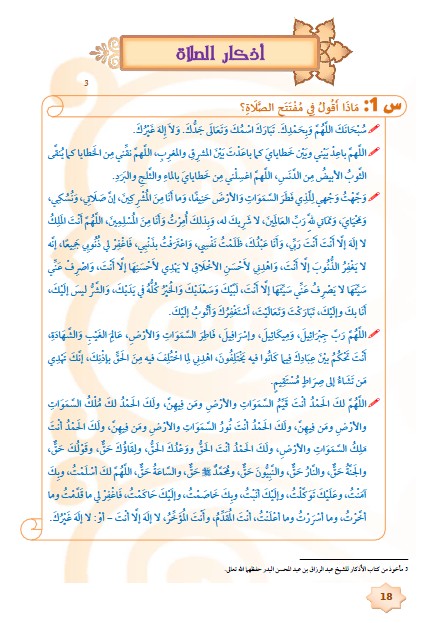 أذكار الصلاة
3
س 1: مَاذَا أَقُولُ فِي مُفْتَتَحِ الصَّلَاةِ؟
سُبْحَانَكَ اللَّهُمَّ وَبِحَمْدِكَ. تَبَارَكَ اسْمُكَ وَتَعَالَى جَدُّكَ. وَلاَ إِلَهَ غَيْرُكَ.
اللَّهُمَّ بَاعِدْ بَيْنِي وبَيْنَ خَطَايَايَ كما بَاعَدْتَ بَيْنَ المشرِقِ والمغرِبِ، اللَّهمَّ نقِّني مِنَ الخطايا كما يُنَقَّى
الثوبُ الأبيضُ مِنَ الدَّنَسِ، اللَّهمَّ اغسِلْنِي مِن خَطَايَايَ بالماءِ والثَّلجِ والبَرَدِ.
وَجَّهْتُ وَجْهِي لِلَّذِي فَطَرَ السَّمَوَاتِ وَالأَرْضَ حَنِيفًا، وَما أَنَا مِنَ المُشْرِكِينَ، إنَّ صَلَاتي، وَنُسُكِي،
وَمَحْيَايَ، وَمَمَاتي للهِ رَبِّ العَالَمِينَ، لا شَرِيكَ له، وَبِذلكَ أُمِرْتُ وَأَنَا مِنَ المُسْلِمِينَ، اللَّهُمَّ أَنْتَ المَلِكُ
لا إلَهَ إلَّا أَنْتَ أَنْتَ رَبِّي، وَأَنَا عَبْدُكَ، ظَلَمْتُ نَفْسِي، وَاعْتَرَفْتُ بذَنْبِي، فَاغْفِرْ لي ذُنُوبِي جَمِيعًا، إنَّه
لا يَغْفِرُ الذُّنُوبَ إلَّا أَنْتَ، وَاهْدِنِي لأَحْسَنِ الأخْلَاقِ لا يَهْدِي لأَحْسَنِهَا إلَّا أَنْتَ، وَاصْرِفْ عَنِّي
سَيِّئَهَا لا يَصْرِفُ عَنِّي سَيِّئَهَا إلَّا أَنْتَ، لَبَّيْكَ وَسَعْدَيْكَ وَالْخَيْرُ كُلُّهُ في يَدَيْكَ، وَالشَّرُّ ليسَ إلَيْكَ،
أَنَا بكَ وإلَيْكَ، تَبَارَكْتَ وَتَعَالَيْتَ، أَسْتَغْفِرُكَ وَأَتُوبُ إلَيْكَ.
اللَّهُمَّ رَبَّ جِبْرَائِيلَ، وَمِيكَائِيلَ، وإسْرَافِيلَ، فَاطِرَ السَّمَوَاتِ وَالأرْضِ، عَالِمَ الغَيْبِ وَالشَّهَادَةِ،
أَنْتَ تَحْكُمُ بيْنَ عِبَادِكَ فِيما كَانُوا فيه يَخْتَلِفُونَ، اهْدِنِي لِما اخْتُلِفَ فيه مِنَ الحَقِّ بإذْنِكَ، إنَّكَ تَهْدِي
مَن تَشَاءُ إلى صِرَاطٍ مُسْتَقِيمٍ.
اللَّهُمَّ لكَ الحَمْدُ أنْتَ قَيِّمُ السَّمَوَاتِ والأرْضِ ومَن فِيهِنَّ، ولَكَ الحَمْدُ لكَ مُلْكُ السَّمَوَاتِ
والأرْضِ ومَن فِيهِنَّ، ولَكَ الحَمْدُ أنْتَ نُورُ السَّمَوَاتِ والأرْضِ ومَن فِيهِنَّ، ولَكَ الحَمْدُ أنْتَ
مَلِكُ السَّمَوَاتِ والأرْضِ، ولَكَ الحَمْدُ أنْتَ الحَقُّ ووَعْدُكَ الحَقُّ، ولِقَاؤُكَ حَقٌّ، وقَوْلُكَ حَقٌّ،
والجَنَّةُ حَقٌّ، والنَّارُ حَقٌّ، والنَّبِيُّونَ حَقٌّ، ومُحَمَّدٌ ﷺ حَقٌّ، والسَّاعَةُ حَقٌّ، اللَّهُمَّ لكَ أسْلَمْتُ، وبِكَ
آمَنْتُ، وعَلَيْكَ تَوَكَّلْتُ، وإلَيْكَ أنَبْتُ، وبِكَ خَاصَمْتُ، وإلَيْكَ حَاكَمْتُ، فَاغْفِرْ لي ما قَدَّمْتُ وما
أخَّرْتُ، وما أسْرَرْتُ وما أعْلَنْتُ، أنْتَ المُقَدِّمُ، وأَنْتَ المُؤَخِّرُ، لا إلَهَ إلَّا أنْتَ - أوْ: لا إلَهَ غَيْرُكَ.
3 مأخوذ من كتاب الأذكار للشيخ عبد الرزاق بن عبد المحسن البدر حفظهما الله تعالى.
18